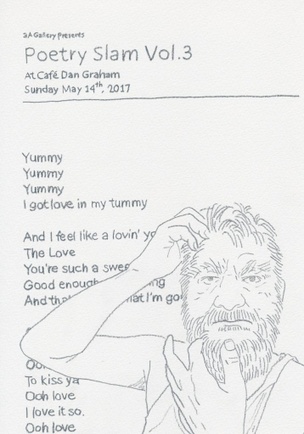 2A Gallery presents
Poetry Slam Vol.3
At Café Dan Graham
Sunday May 14th, 2017
Yummy
Yummy
Yummy
I got love in my tummy
And I feel like a lovin'
The Love
You're such a
Good
And
To kiss ya
Ooh love
I love it so.
Ooh love